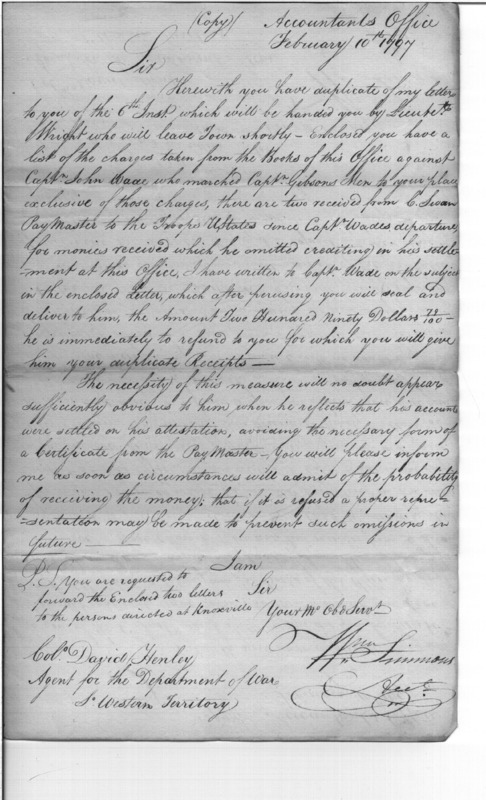 (Copy) Accountants Office
February 10th 1797
Sir
Herewith you have duplicate of my letter
to you of the 6th Inst. which will be handed you by Lieut.
Wright who will leave Town shortly – Enclosed you have a
list of the charges taken from the Books of this Office against
Captn. John Wade who marched Captn. Gibsons Men to your place
exclusive of those charges, there are two received from C. Swan
PayMaster to the Troops UStates since Captn. Wades departure,
for monies received which he omitted crediting in his settle-
-ment at this Office, I have written to Captn. Wade on the subject
in the enclosed letter, which after perusing you will seal and
deliver to him, the Amount Two Hundred Ninety Dollars 72/100 –
he is immediately to refund to you for which you will give
him your duplicate Receipts —
The necessity of this measure will no doubt appear
sufficiently obvious to him, when he reflects that his accounts
were settled on his attestation, avoiding the necessary form of
a Certificate from the PayMaster – You will please inform
me as soon as circumstances will admit of the probability
of receiving the money; that if it is refused a proper repre-
-sentation may be made to prevent such omissions in
future —
I am
P.S. You are requested to
forward the Enclosed two letters
to the persons directed at Knoxville
Sir
Your Mo. Ob. Servt.
Wm. Simmons
Acct.
Colo. David Henley
Agent for the Department of War
So. Western Territory